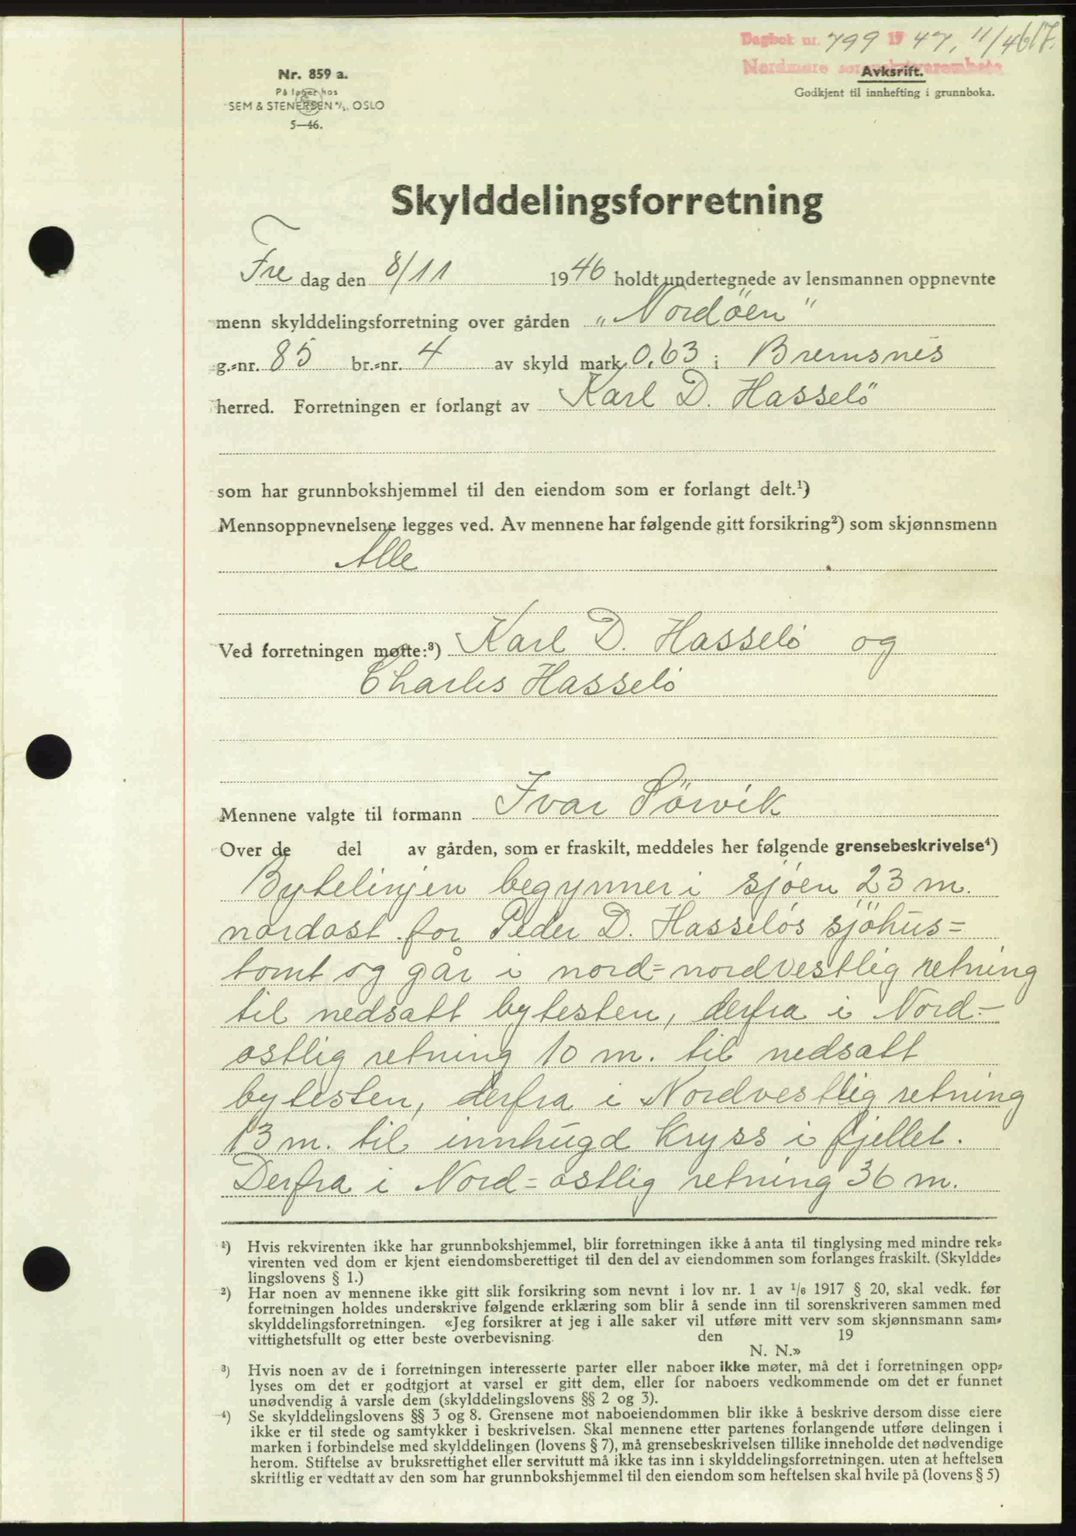 Dagbok nr. 799 1947, 11/4 617.
Nordmøre sorenskriverembete
Nr. 859 a.
På lager hos
SEM & STENERSEN A/S. OSLO
5—46.
Avkskrift.
Godkjent til innhefting i grunnboka.
Skylddelingsforretning
Fre dag den 8/11 1946 holdt undertegnede av lensmannen oppnevnte
menn skylddelingsforretning over gården „Nordöen"
g.-nr. 85 br.-nr. 4 av skyld mark 0.63 i Bremsnes
herred. Forretningen er forlangt av Karl D. Hasselö
som har grunnbokshjemmel til den eiendom som er forlangt delt.¹)
Mennsoppnevnelsene legges ved. Av mennene har følgende gitt forsikring²) som skjønnsmenn
Alle
Ved forretningen møtte:³) Karl D. Hasselö og
Charles Hasselö
Mennene valgte til formann Ivar Sörvik
Over de del av gården, som er fraskilt, meddeles her følgende grensebeskrivelse⁴)
Bytelinjen begynner i sjöen 23 m.
nordost for Peder D. Hasselös sjöhus=
tomt og går i nord=nordvestlig retning
til nedsatt bytesten, derfra i Nord-
ostlig retning 10 m. til nedsatt
bytesten, derfra i Nordvestlig retning
13 m. til innhugd kryss i fjellet.
Derfra i Nord=ostlig retning 36 m.
¹) Hvis rekvirenten ikke har grunnbokshjemmel, blir forretningen ikke å anta til tinglysing med mindre rek-
virenten ved dom er kjent eiendomsberettiget til den del av eiendommen som forlanges fraskilt. (Skyldde-
lingslovens § 1.)
²) Har noen av mennene ikke gitt slik forsikring som nevnt i lov nr. 1 av 1/6 1917 § 20, skal vedk. før
forretningen holdes underskrive følgende erklæring som blir å sende inn til sorenskriveren sammen med
skylddelingsforretningen. «Jeg forsikrer at jeg i alle saker vil utføre mitt verv som skjønnsmann sam-
vittighetsfullt og etter beste overbevisning. den 19
N. N.»
³) Hvis noen av de i forretningen interesserte parter eller naboer ikke møter, må det i forretningen opp-
lyses om det er godtgjort at varsel er gitt dem, eller for naboers vedkommende om det er funnet
unødvendig å varsle dem (skylddelingslovens §§ 2 og 3).
⁴) Se skylddelingslovens §§ 3 og 8. Grensene mot naboeiendommen blir ikke å beskrive dersom disse eiere
ikke er til stede og samtykker i beskrivelsen. Skal mennene etter partenes forlangende utføre delingen i
marken i forbindelse med skylddelingen (lovens § 7), må grensebeskrivelsen tillike inneholde det nødvendige
herom. Stiftelse av bruksrettighet eller servitutt må ikke tas inn i skylddelingsforretningen. uten at heftelsen
skriftlig er vedtatt av den som har grunnbokshjemmel til den eiendom som heftelsen skal hvile på (lovens § 5)